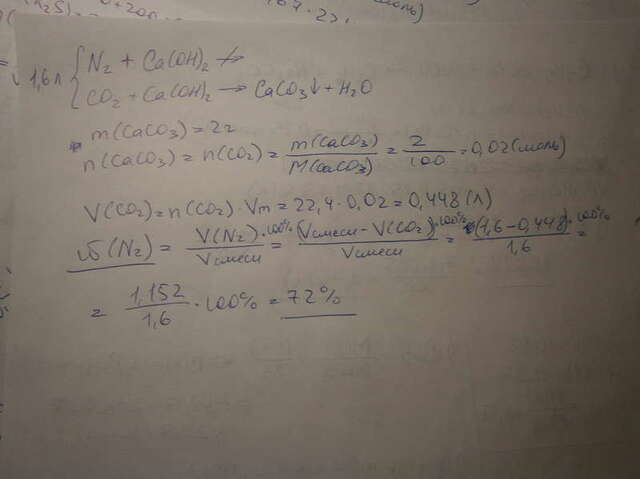 1,6л { N₂ + Ca(OH)₂ ↛
CO₂ + Ca(OH)₂ → CaCO₃↓ + H₂O
m(CaCO₃) = 2г
n(CaCO₃) = n(CO₂) = m(CaCO₃)/M(CaCO₃) = 2/100 = 0,02(моль)
V(CO₂) = n(CO₂) · Vm = 22,4 · 0,02 = 0,448(л)
υб(N₂) = V(N₂)·100%/Vсмеси = (Vсмеси - V(CO₂))·100%/Vсмеси = (1,6 - 0,448)·100%/1,6 =
= 1,152/1,6 · 100% = 72%